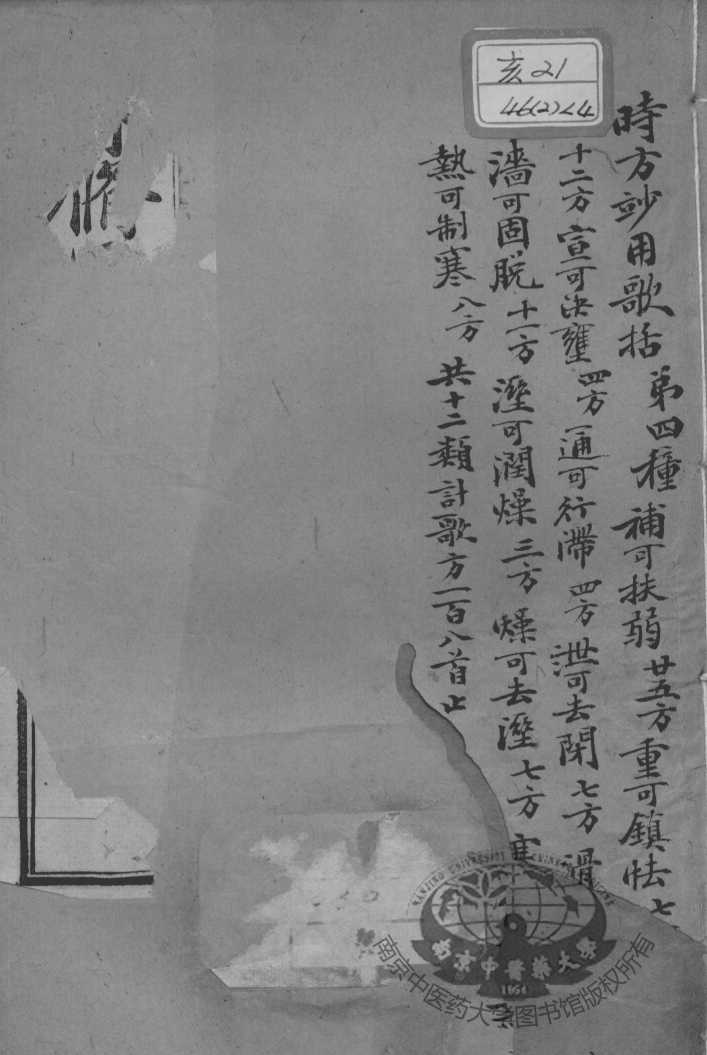 亥21
46(2)<4
時方妙用歌括 第四種 補可扶弱 廿五方 重可鎮怯 七
十二方 宣可決壅 四方 通可行滯 四方 泄可去閉 七方 滑
濇可固脫 十一方 溼可潤燥 三方 燥可去溼 七方
熱可制寒 八方 共十二類計歌方一百八首止
南京中醫藥大學
1954
南京中医药大学图书馆版权所有